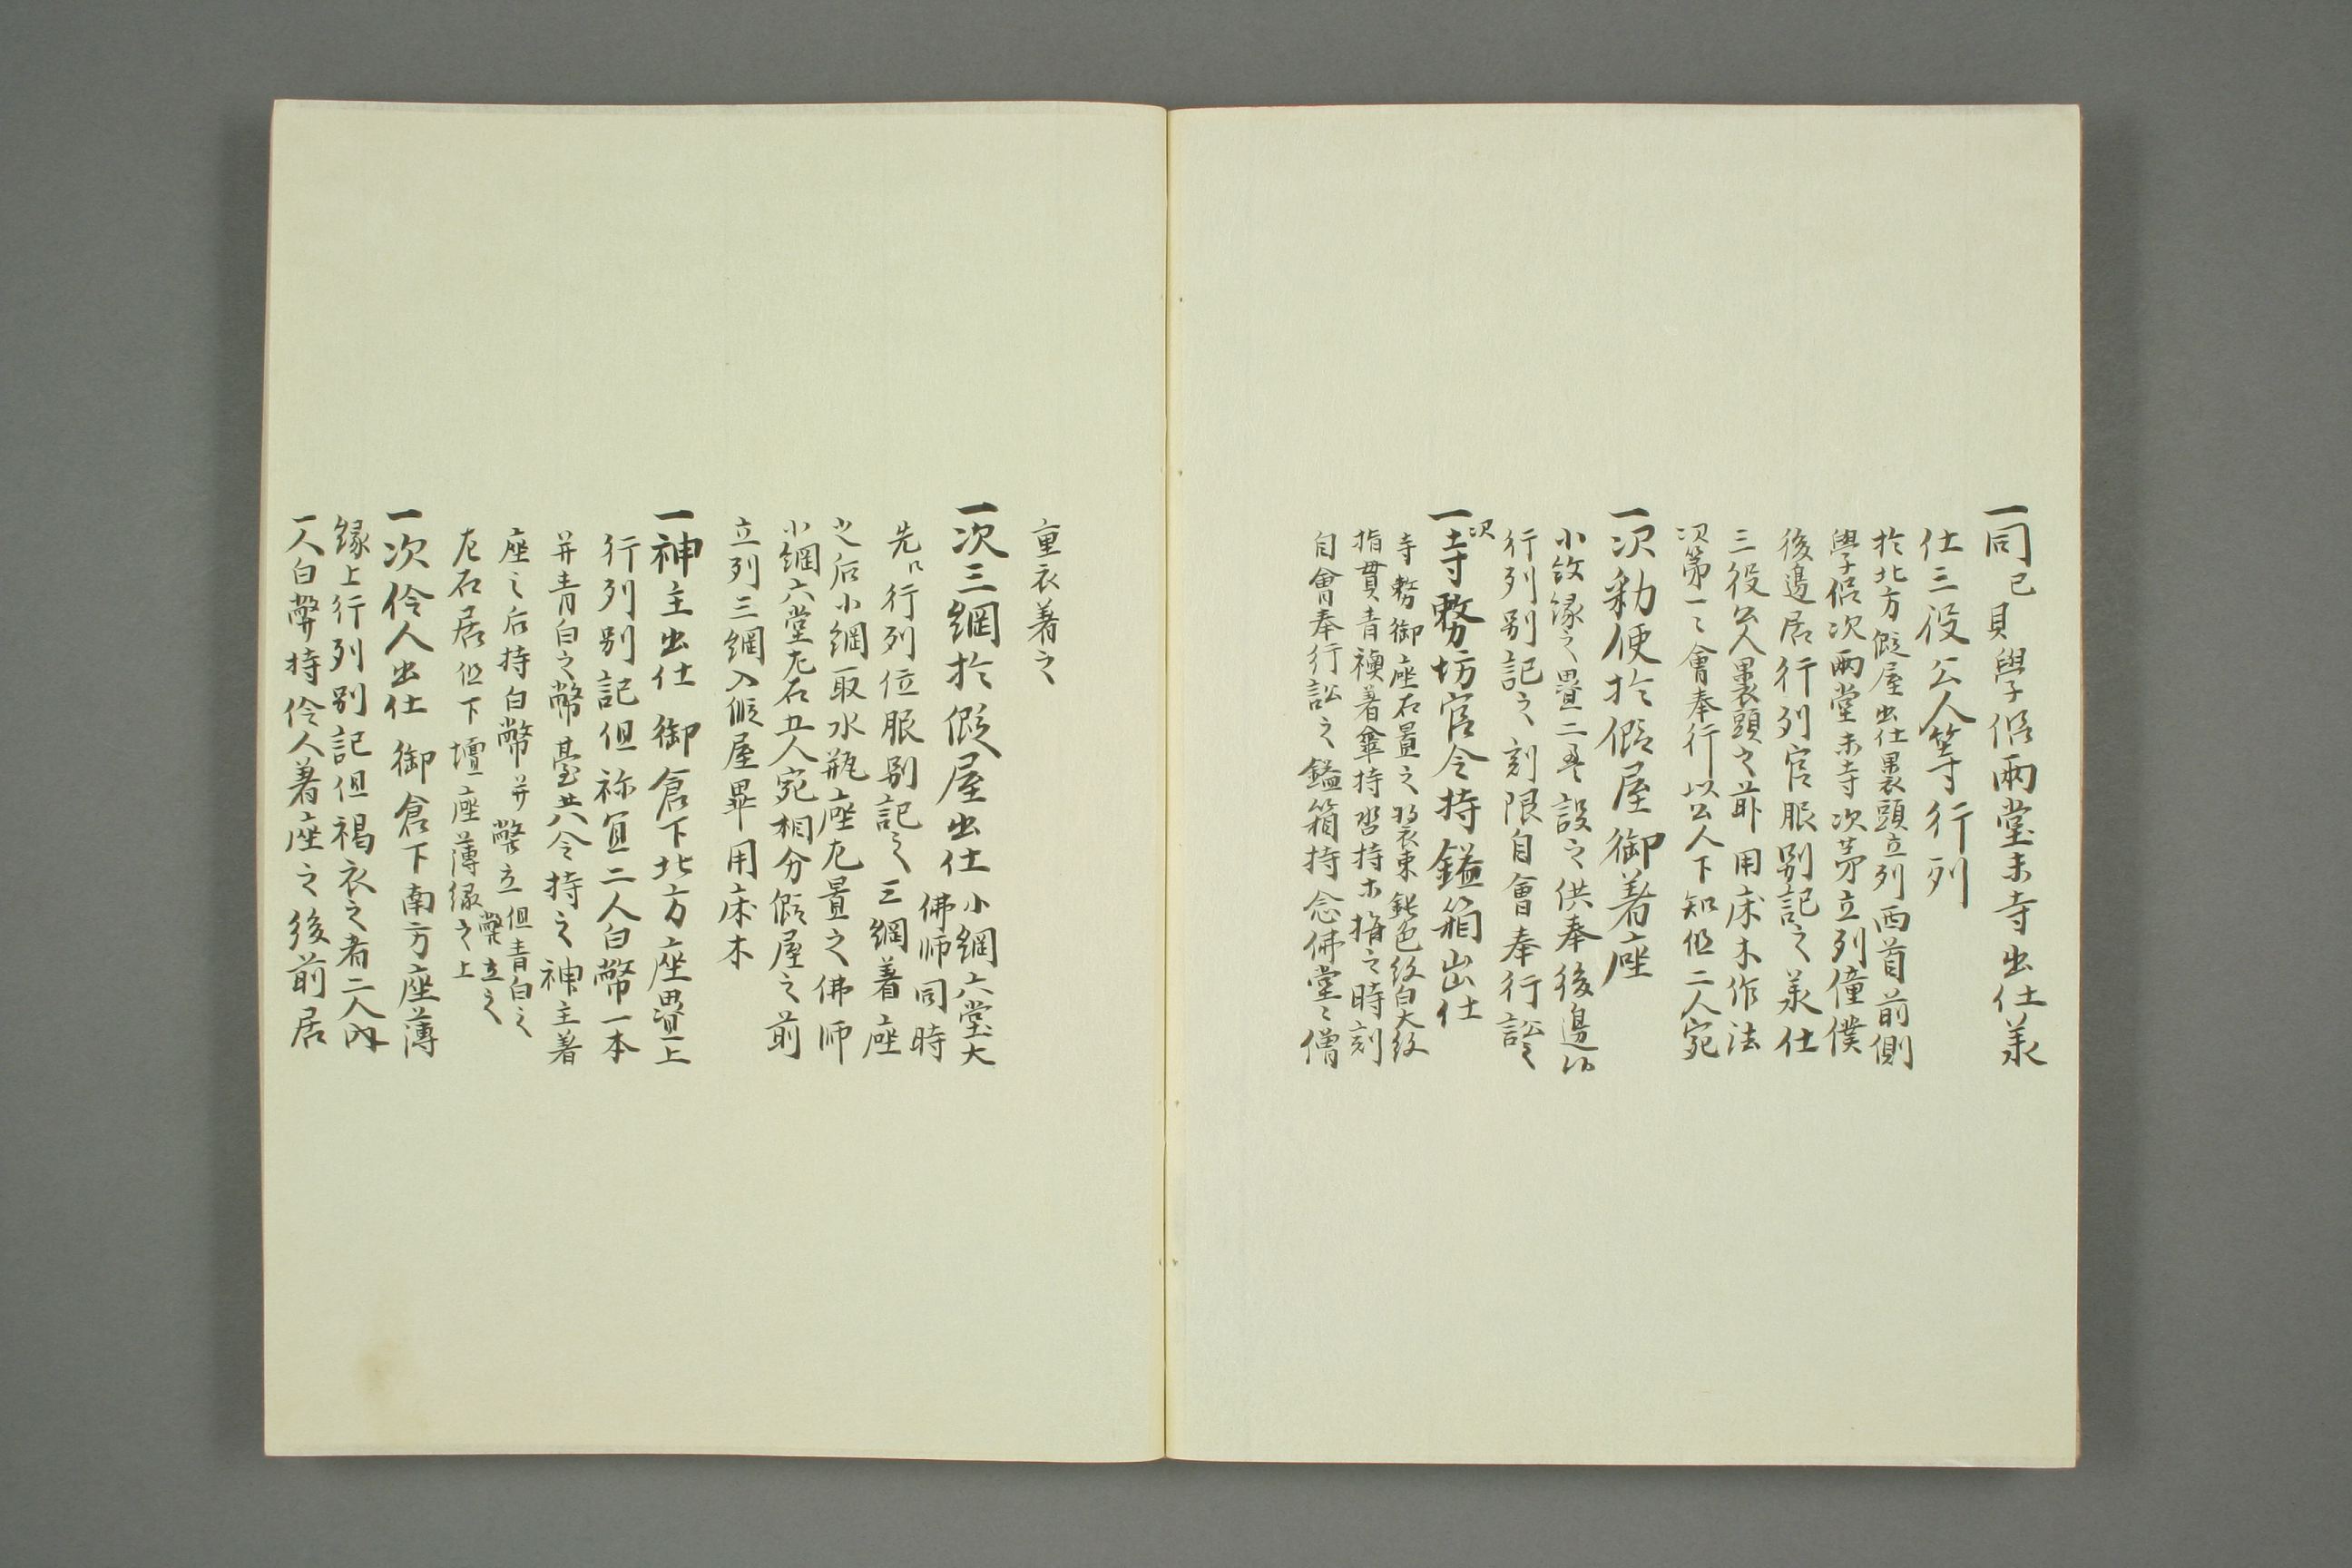 一同已貝學侶兩堂末寺出仕兼
仕三役公人等行列
於北方假屋出仕裹頭立列西首前側
學侶次兩堂末寺次第立列僮僕
後邊居行列官服別記之兼仕
三役公人裹頭之輩用床木作法
次第一〻會奉行以公人下知但二人宛
一次勅使於假屋御著座
小紋縁之疊二疊設之供奉後邊
行列別記之刻限自會奉行訟之
一次寺務坊官令持鎰箱出仕
寺務御座右置之裝束鈍色紋白大紋
指貫青襖著傘持沓持木指之時刻
自會奉行訟之鎰箱持念佛堂〻僧
重衣著之
一次三綱於假屋出仕 小綱六堂大
佛師同時
先行列位服別記之三綱着座
之后小綱取水瓶座左置之佛師
小綱六堂左右五人宛相分假屋之前
立列三綱入假屋畢用床木
一神主出仕 御倉下北方座疊上
行列別記但祢宜二人白幣一本
并青白之幣臺共令持之神主着
座之后持白幣并幣立 但青白之
幣立之
左右居但下壇座薄縁之上
一次伶人出仕 御倉下南方座薄
縁上行列別記但褐衣之者二人内
一人白幣持伶人著座之後前居